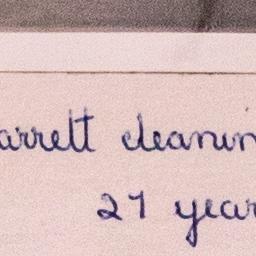 arrett cleanin
27 year